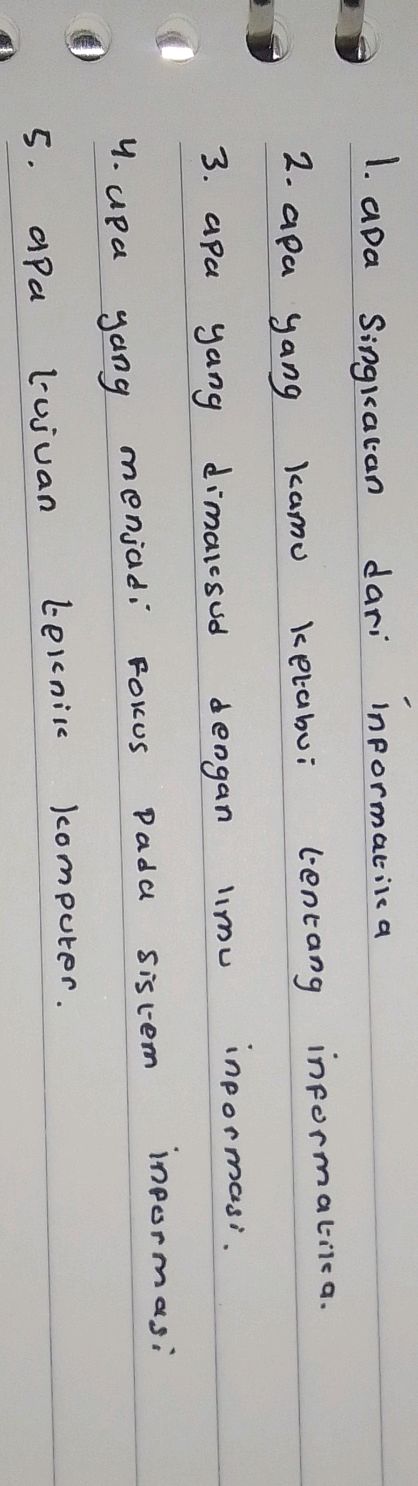 1. apa Singkatan dari informatika
2. apa yang kamu ketahui tentang informatika.
3. apa yang dimaksud dengan limu informasi.
4. apa yang menjadi Fokus pada sistem informasi
5. apa tujuan teknik komputer.